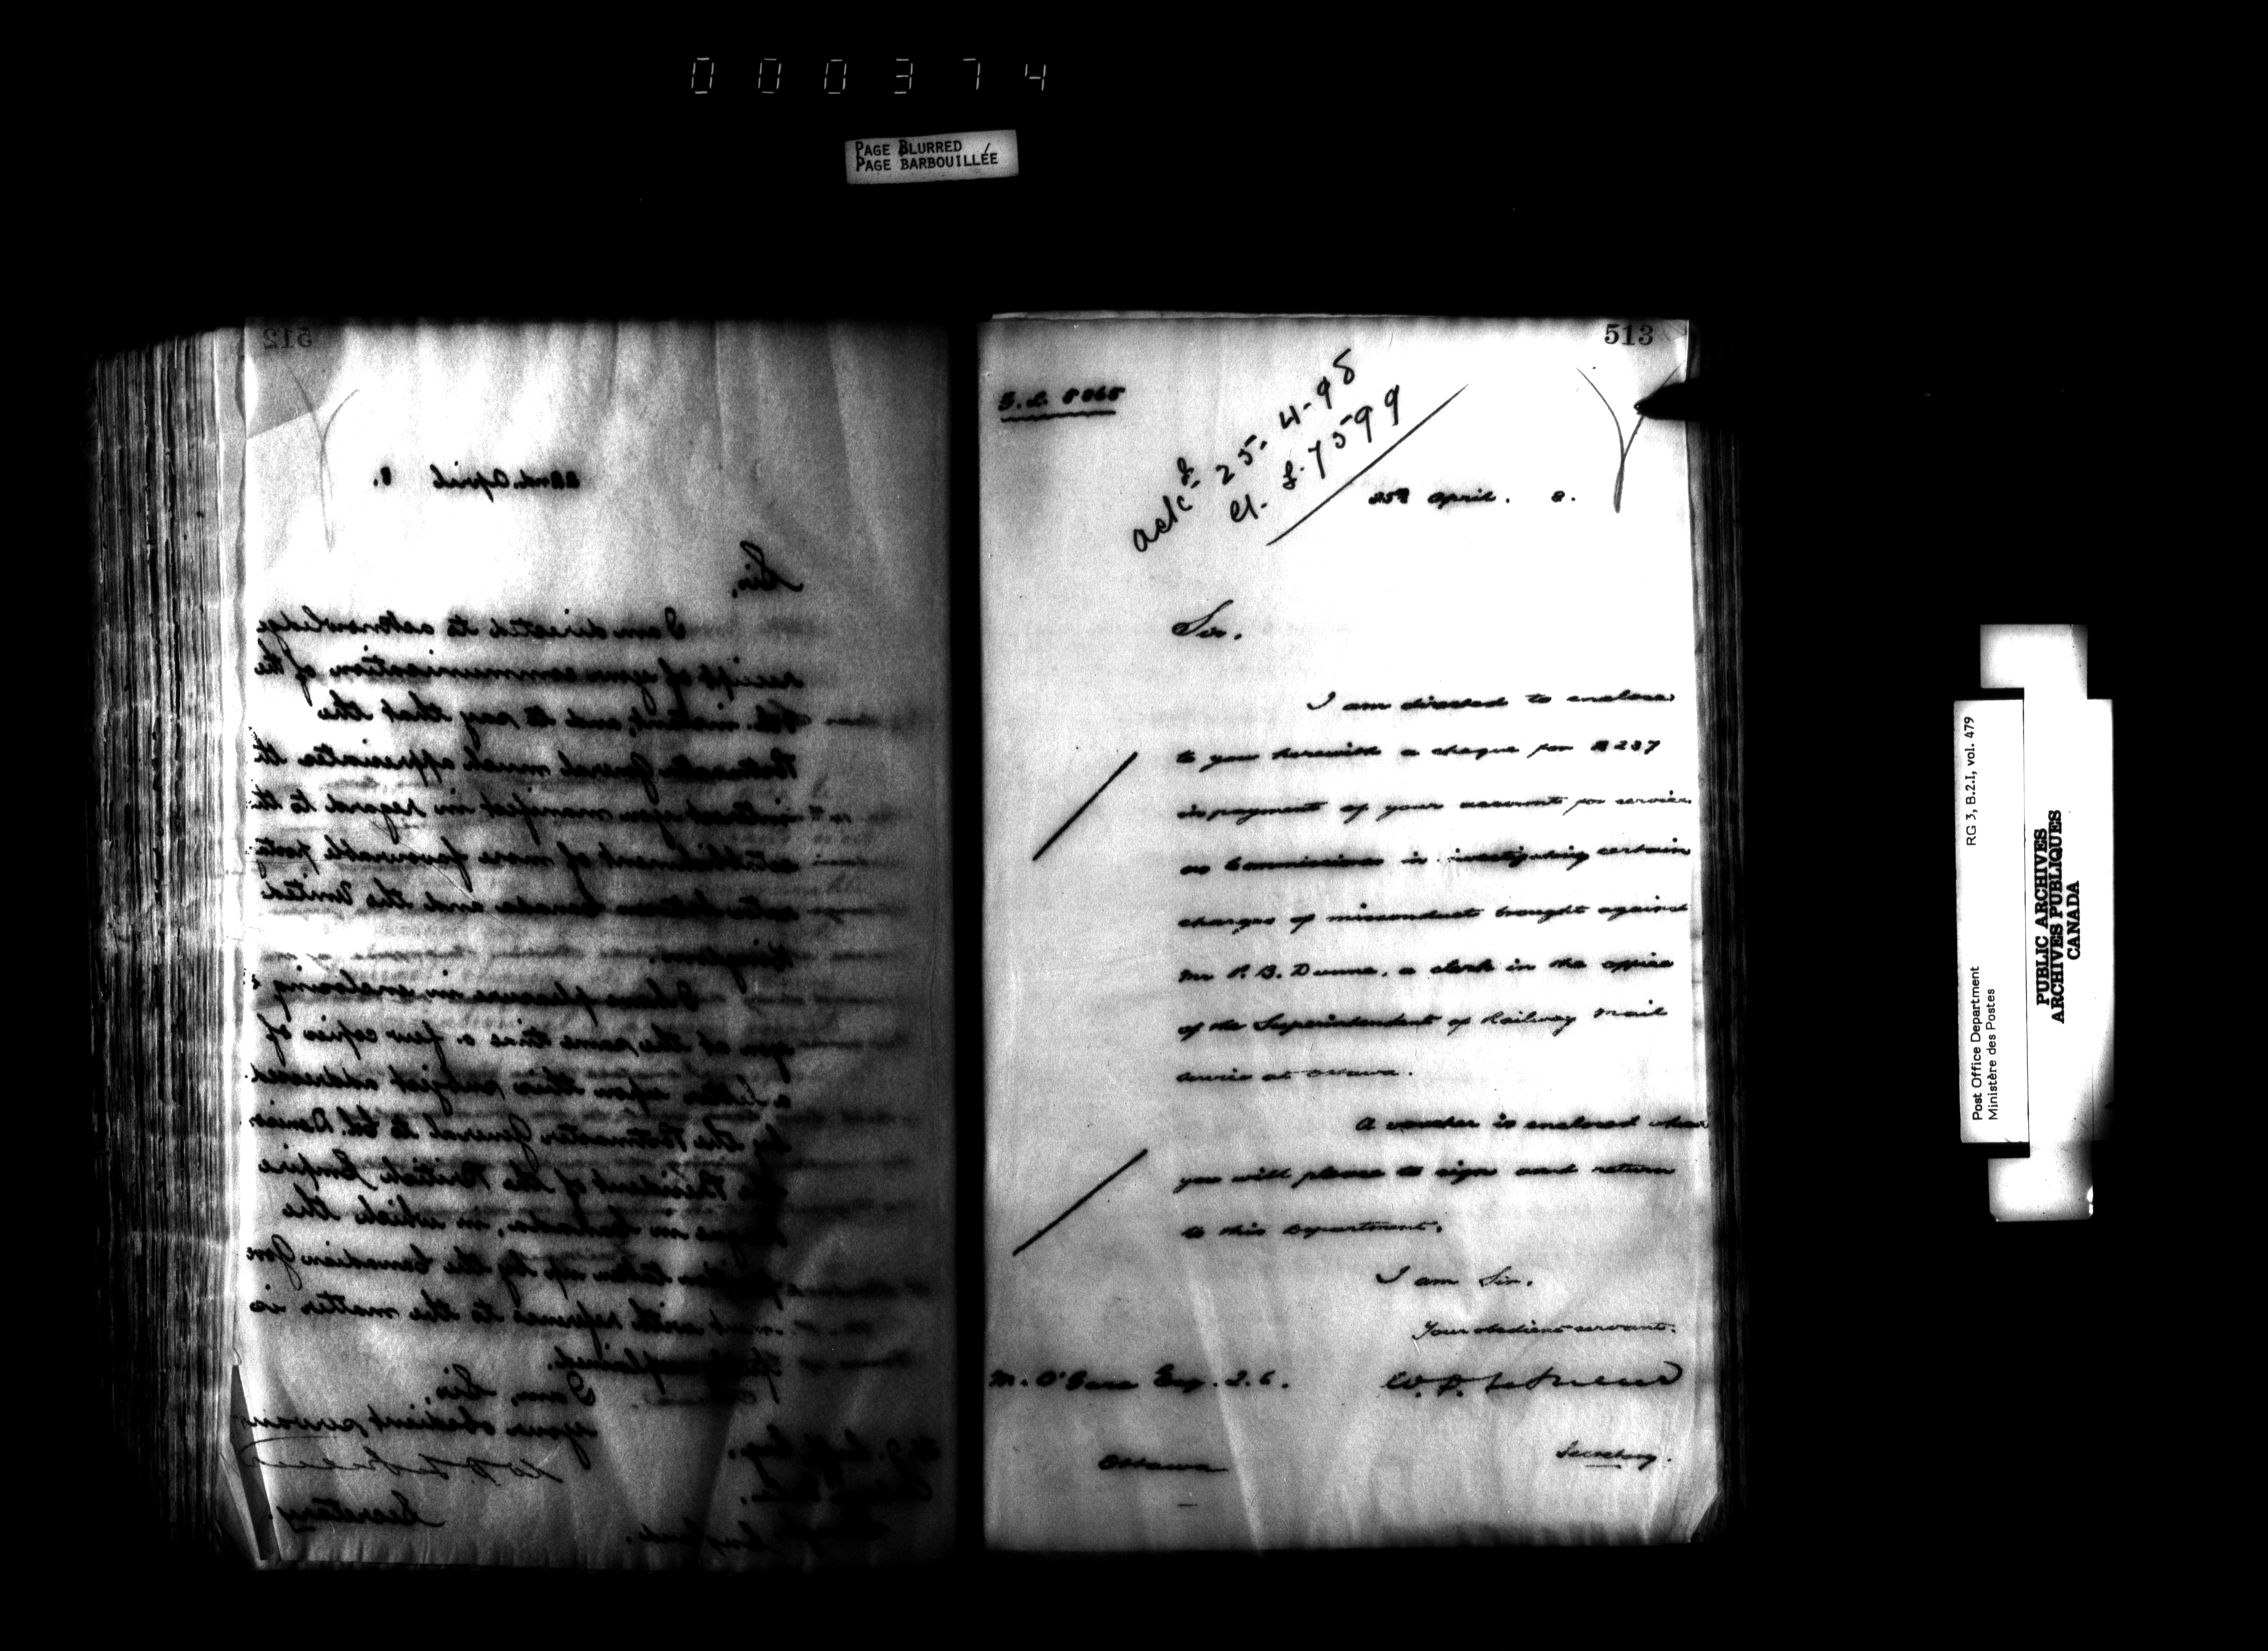 000374
PAGE BLURRED
PAGE BARBOUILLÉE
512
22nd. April 8.
Sir,
I am directed to acknowledge
receipt of your communication of the
instant, and to say that the
Postmaster General much appreciates the
interest you manifest in regard to the
establishment of more favourable postal
rates between Canada and the United
Kingdom.
I have pleasure in enclosing to
you at the same time a few copies of
a letter upon this subject addressed
by the Postmaster General to Col. Denison
the President of the British Empire
League in Canada, in which the
position taken up by the Canadian Gov
ment with reference to the matter is
explained.
I am, Sir,
Your obedient servant
Secretary.
513
ack'd 25-4-98
El. £. 7599
25th April. 8.
Sir.
I am directed to enclose
to you herewith a cheque for $237
in payment of your account for services
as Commissioner in investigating certain
charges of misconduct brought against
Mr P. B. Dunne, a clerk in the office
of the Superintendent of Railway Mail
Service at Ottawa.
A voucher is enclosed which
you will please to sign and return
to this Department.
I am Sir.
Your obedient servant.
M. O'Gara Esq. Q.C.
Ottawa
Secretary.
Post Office Department
Ministère des Postes
RG 3, B.2.I, vol. 479
PUBLIC ARCHIVES
ARCHIVES PUBLIQUES
CANADA